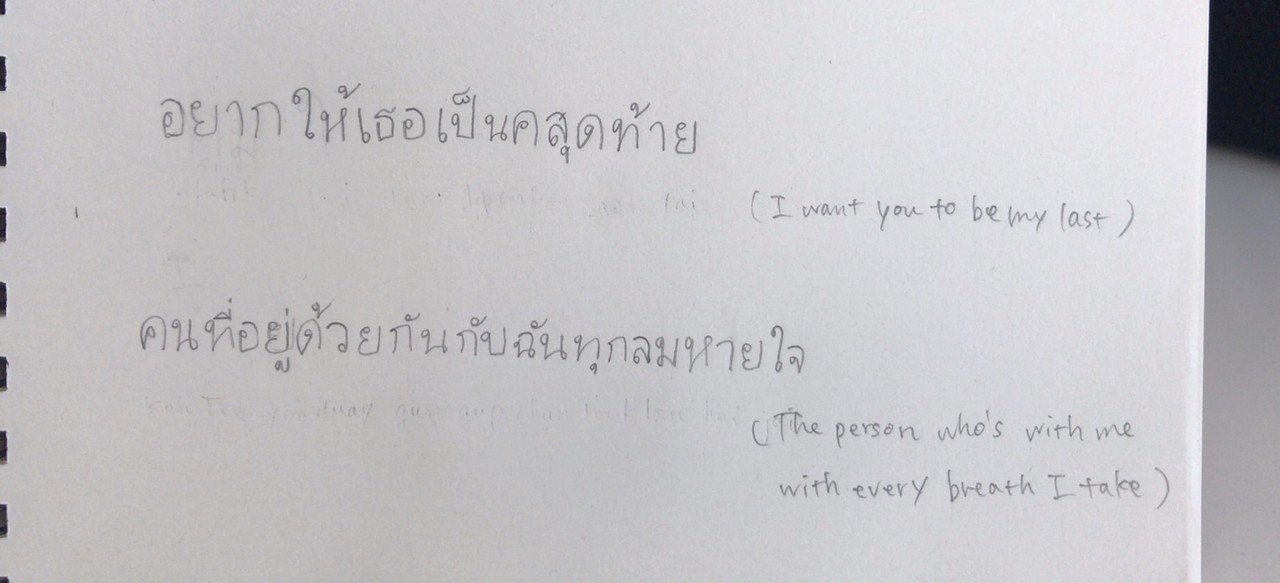 อยากให้เธอเป็นคสุดท้าย
(I want you to be my last)
คนที่อยู่ด้วยกันกับฉันทุกลมหายใจ
(The person who's with me
with every breath I take)